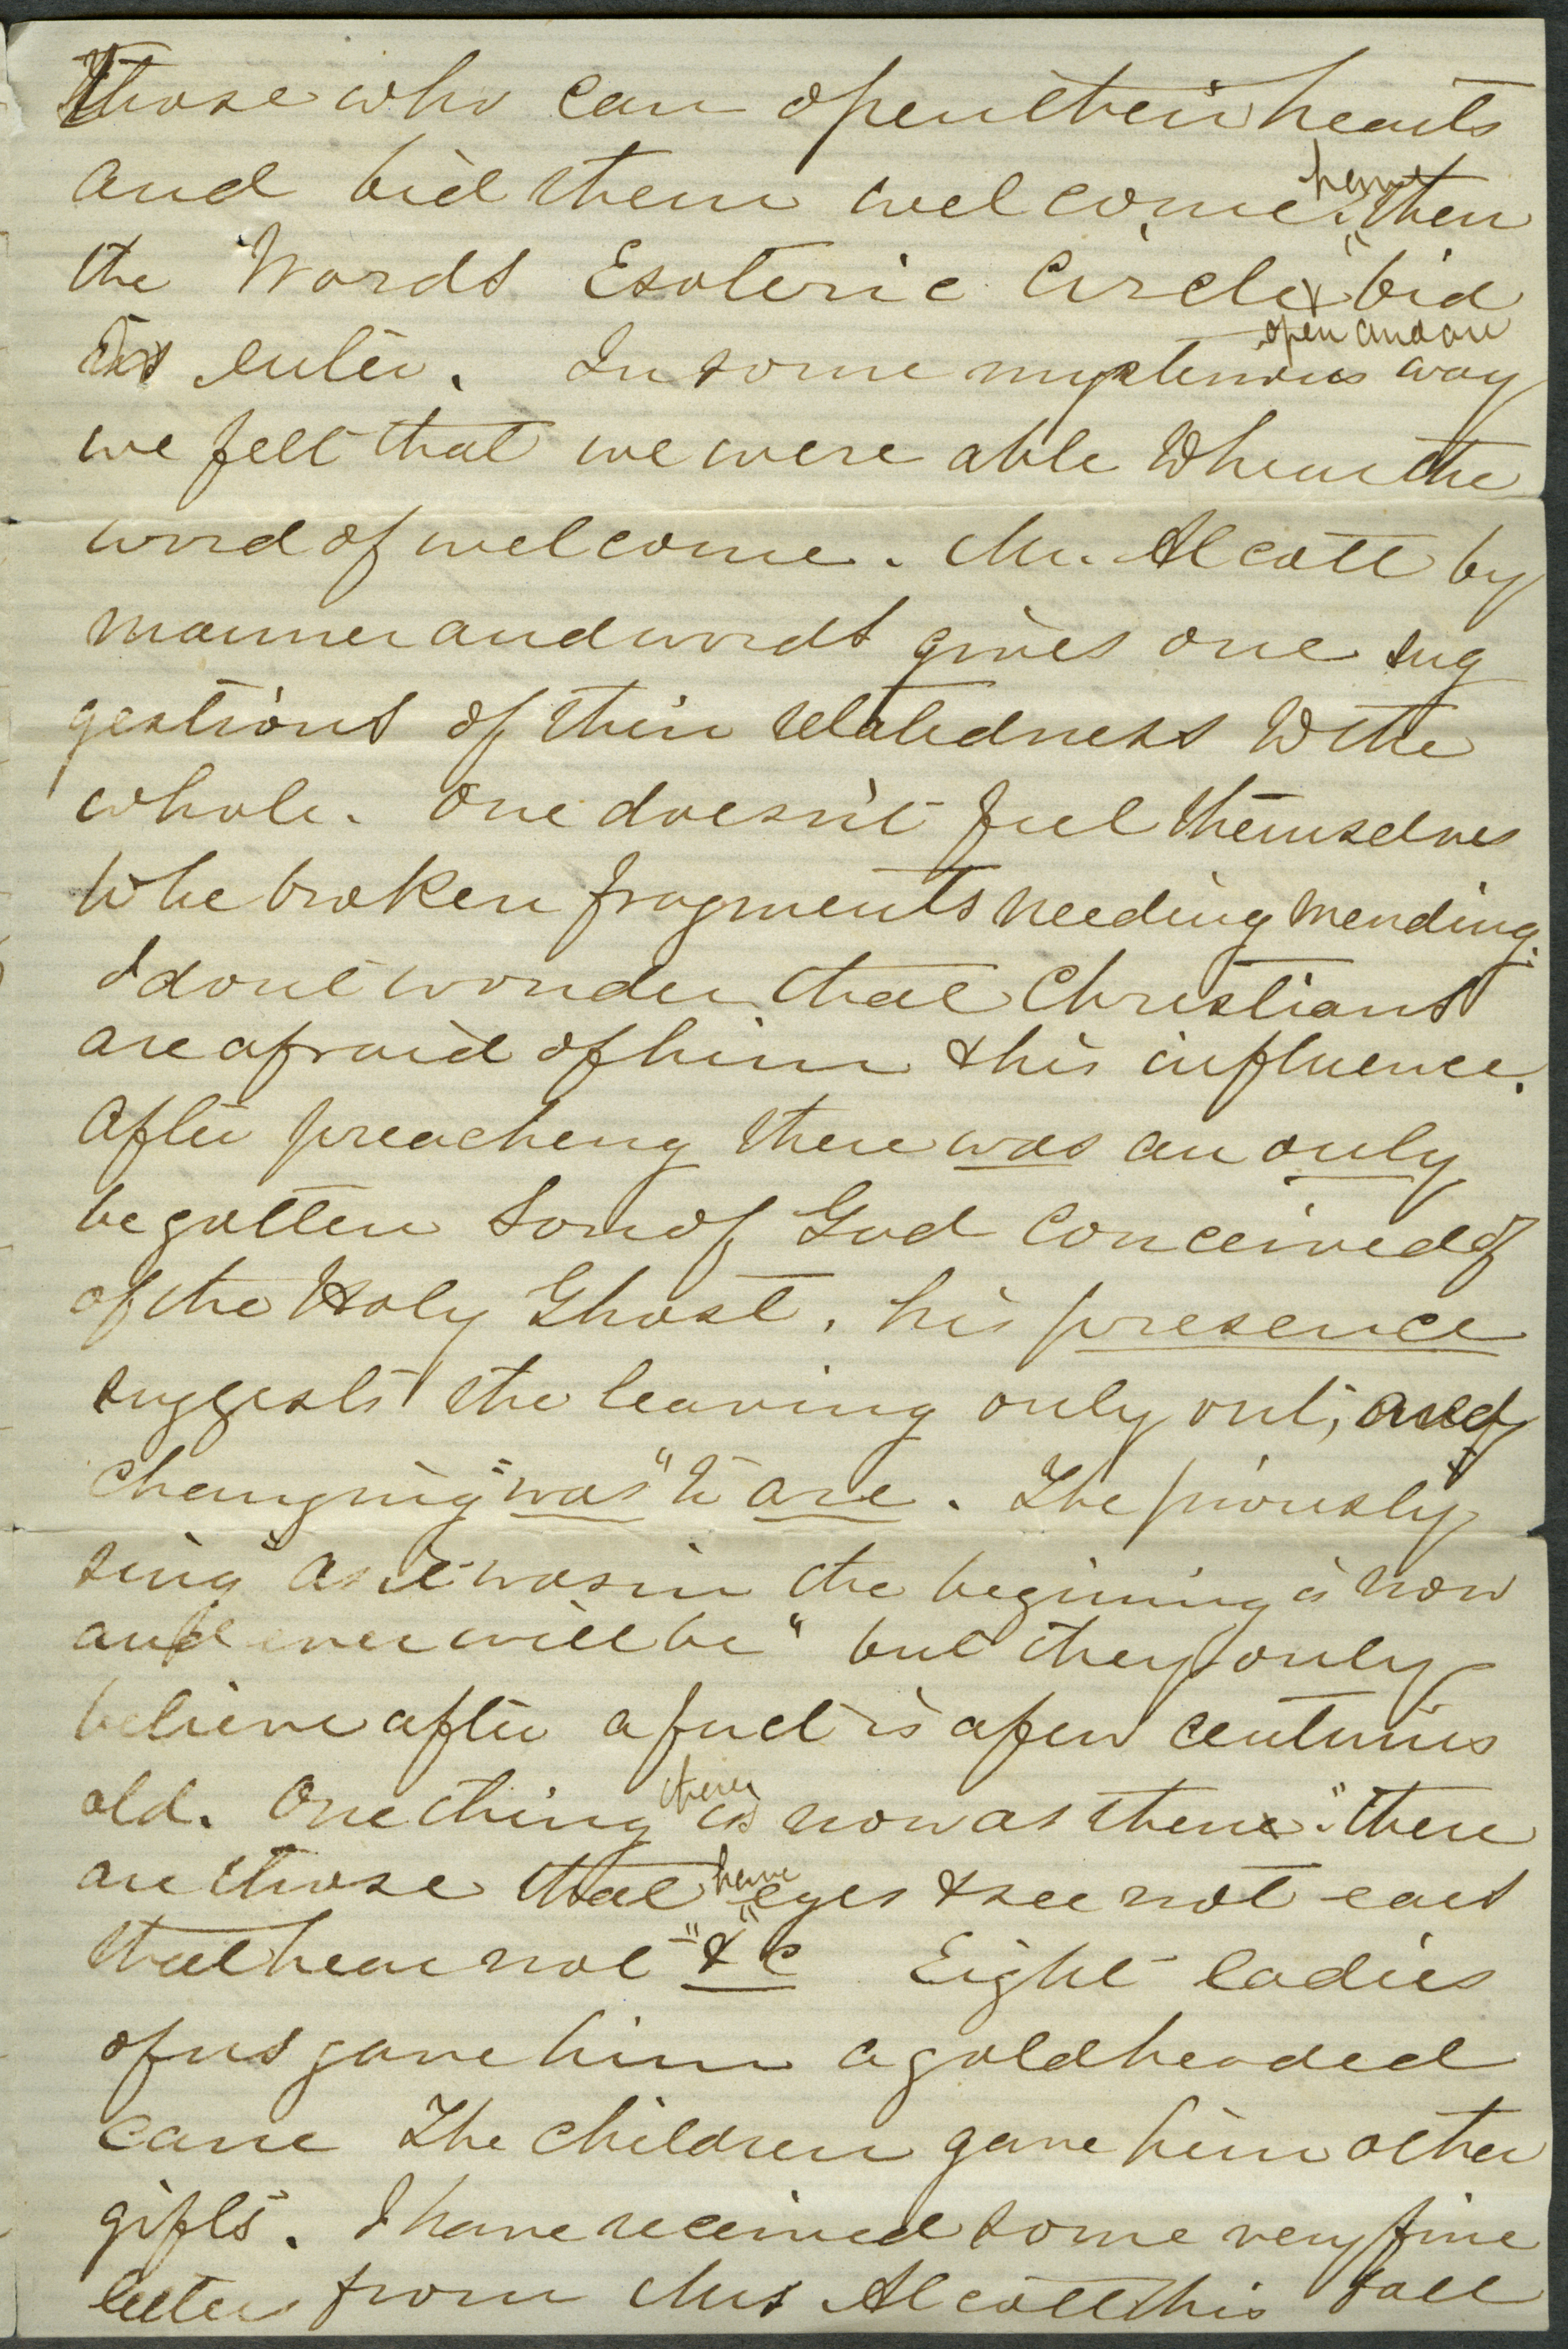 those who can open their hearts
and bid them welcome. then
the words Esoteric Circle bid
us enter. In some mysterious way
open and
we felt that we were able to hear the
word of welcome. Mr. Alcott by
manner and words gives one sug
gestions of their relatedness to the
whole. One doesn't feel themselves
to be broken fragments needing mending.
I dont wonder that Christians
are afraid of him & his influence.
After preaching there was an only
begotten Son of God conceived of
of the Holy Ghost, his presence
suggests the leaving only out, and
changing "was" to are. The piously
sing "as it was in the begining is now
and ever will be" but they only
believe after a fact is a few centuries
old. One thing is now as then "there
are those that have eyes & see not ears
that hear not" &c Eight ladies
of us gave him a gold headed
cane The children gave him other
gifts. I have received some very fine
letters from Mrs Alcott this fall